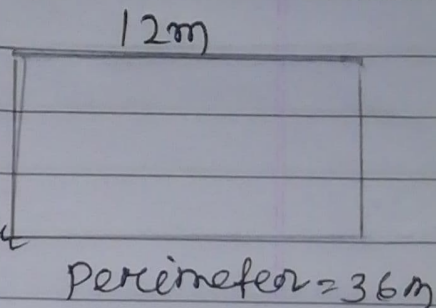 12m
Perimeter = 36m